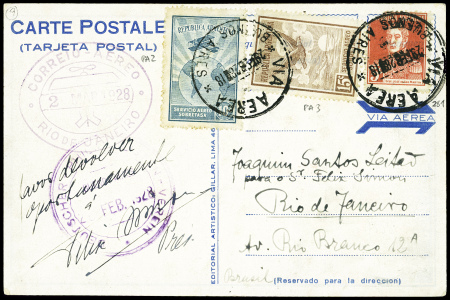 CARTE POSTALE
(TARJETA POSTAL)
REPUBLICA ARGENTINA
SERVICIO AEREO
SOBRETASA
15
VIA AEREA
BUENOS AIRES
VIA AEREA
BUENOS AIRES
VIA AEREA
PA2
PA3
CORREIO AEREO
2 1928
RIO DE JANEIRO
FEB. 1928
VEREIN
devolver
oportunamente
á
Felix Simon
Pres.
EDITORIAL ARTISTICO, GILLAR, LIMA 46
Joaquim Santos Leitão
para o Sr. Felix Simon
Rio de Janeiro
Av. Rio Branco 12A
Brasil
(Reservado para la direccion)